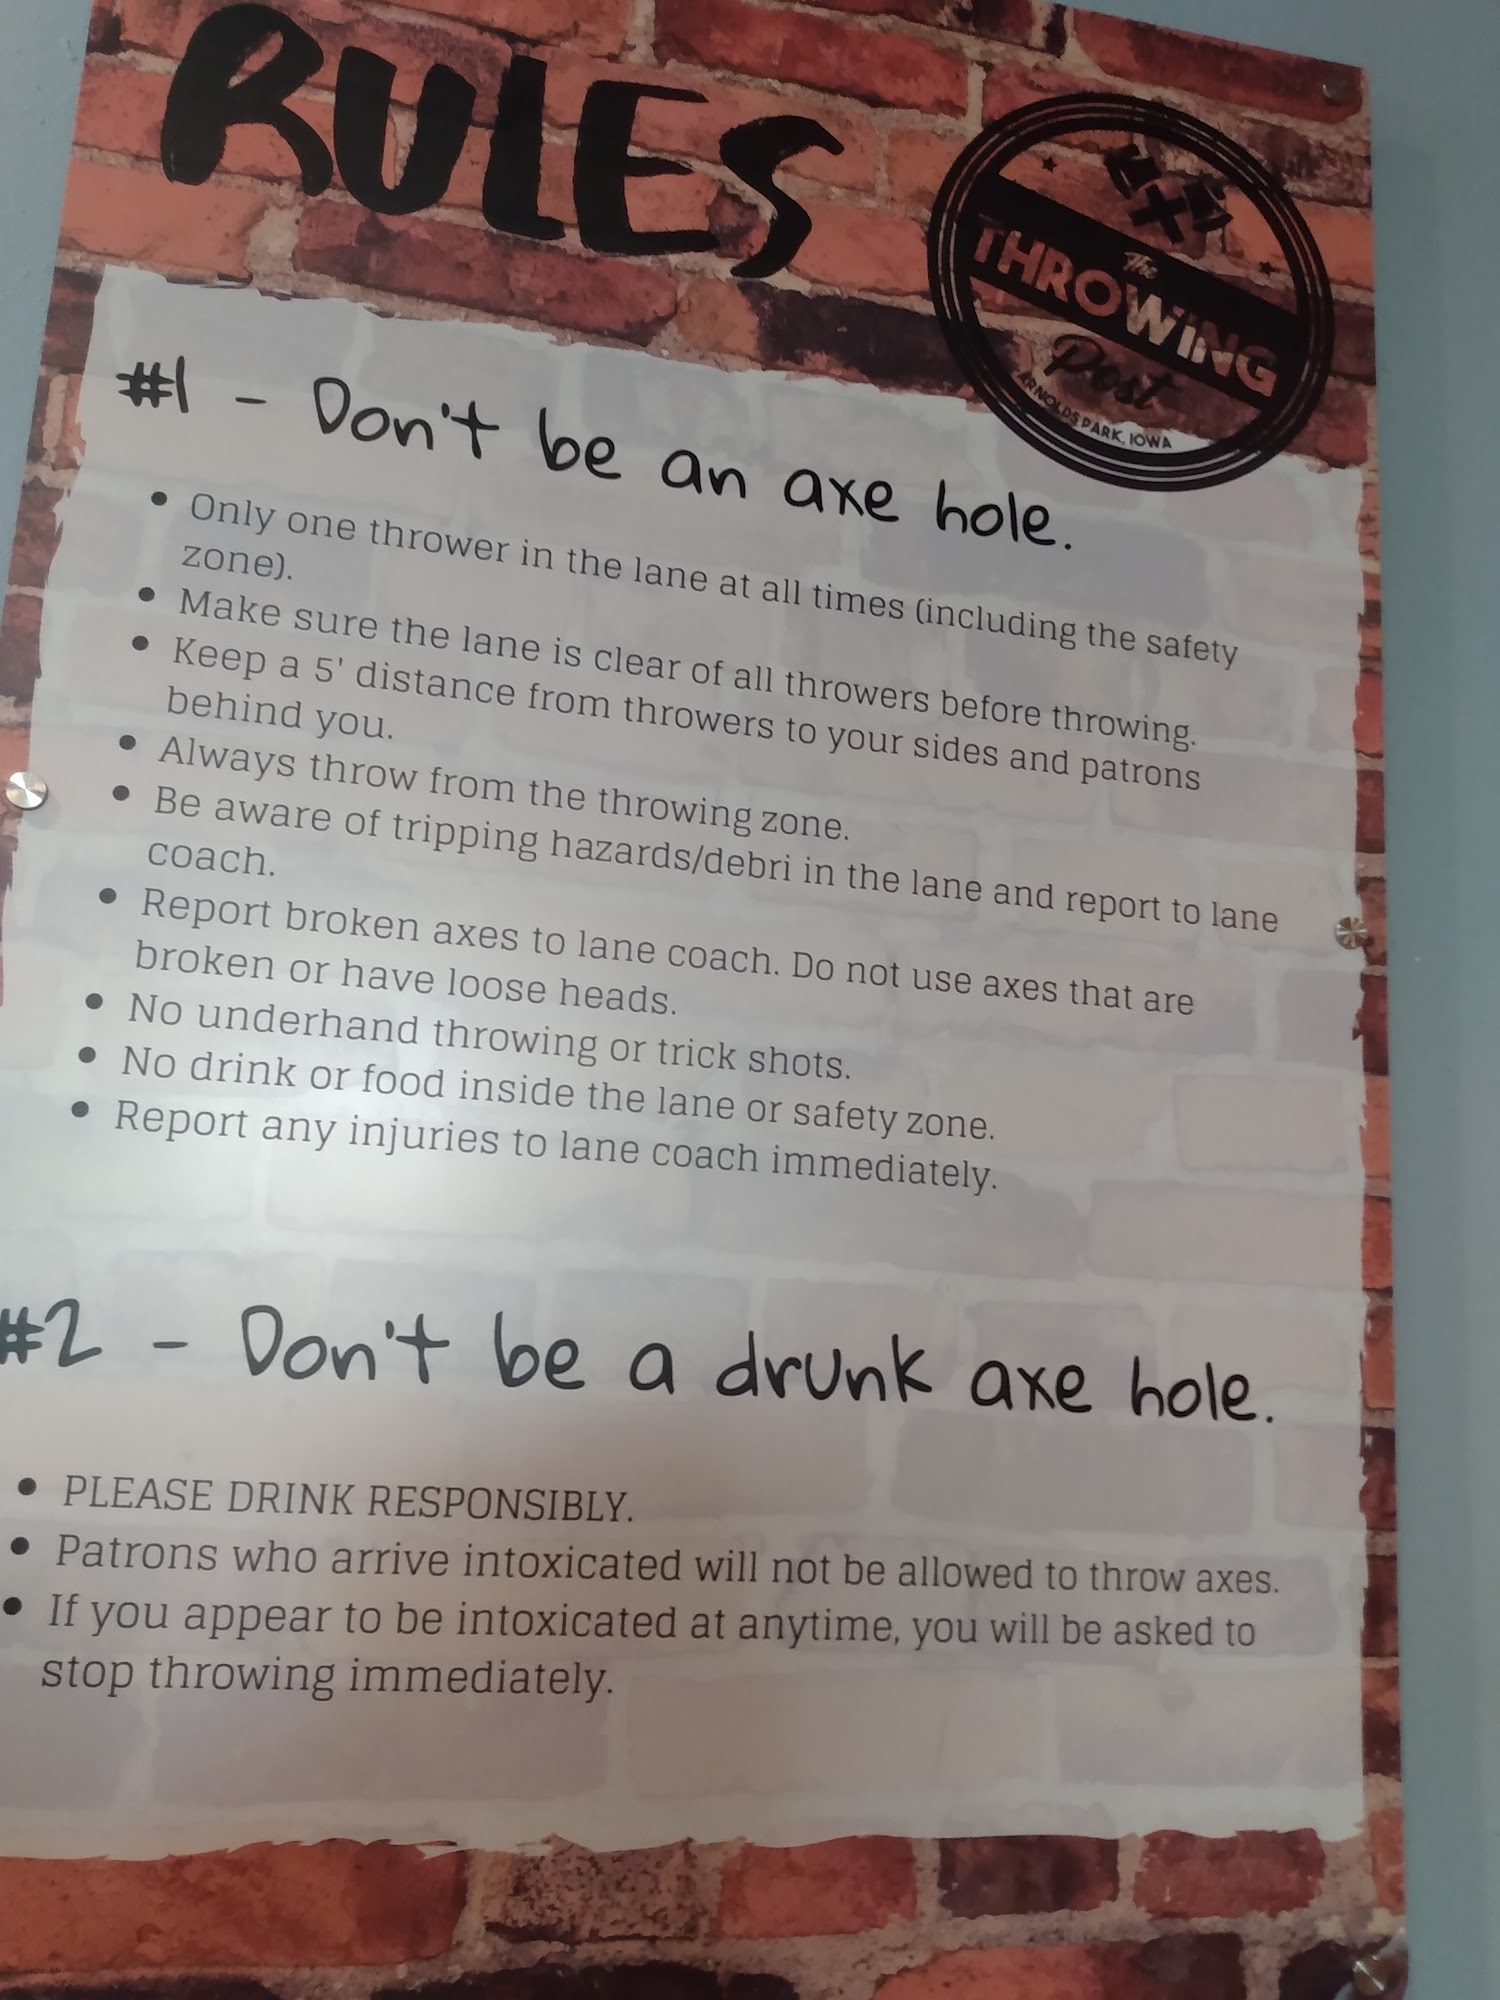 RULES
The
THROWING
Post
ARNOLDS PARK, IOWA
#1 - Don't be an axe hole.
• Only one thrower in the lane at all times (including the safety
zone).
• Make sure the lane is clear of all throwers before throwing.
• Keep a 5' distance from throwers to your sides and patrons
behind you.
• Always throw from the throwing zone.
• Be aware of tripping hazards/debri in the lane and report to lane
coach.
• Report broken axes to lane coach. Do not use axes that are
broken or have loose heads.
• No underhand throwing or trick shots.
• No drink or food inside the lane or safety zone.
• Report any injuries to lane coach immediately.
#2 - Don't be a drunk axe hole.
• PLEASE DRINK RESPONSIBLY.
• Patrons who arrive intoxicated will not be allowed to throw axes.
• If you appear to be intoxicated at anytime, you will be asked to
stop throwing immediately.